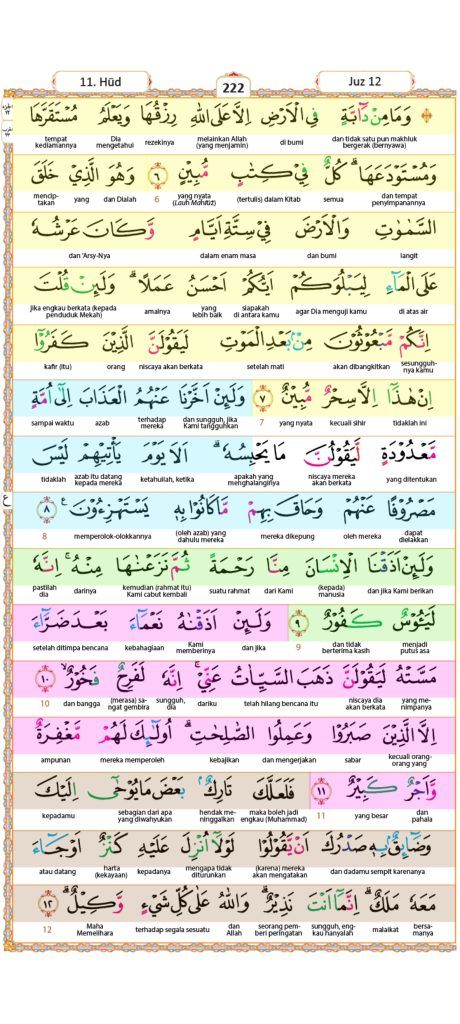 11. Hūd
222
Juz 12
وَمَا مِنْ دَاۤبَّةٍ فِى الْاَرْضِ اِلَّا عَلَى اللّٰهِ رِزْقُهَا وَيَعْلَمُ مُسْتَقَرَّهَا
dan tidak satu pun makhluk bergerak (bernyawa) di bumi melainkan Allah (yang menjamin) rezekinya Dia mengetahui tempat kediamannya
وَمُسْتَوْدَعَهَا ۗ كُلٌّ فِيْ كِتٰبٍ مُّبِيْنٍ ٦ وَهُوَ الَّذِيْ خَلَقَ
dan tempat penyimpanannya semua (tertulis) dalam Kitab yang nyata (Lauh Mahfūẓ) 6 dan Dialah yang menciptakan
السَّمٰوٰتِ وَالْاَرْضَ فِيْ سِتَّةِ اَيَّامٍ وَّكَانَ عَرْشُهٗ
langit dan bumi dalam enam masa dan 'Arsy-Nya
عَلَى الْمَاۤءِ لِيَبْلُوَكُمْ اَيُّكُمْ اَحْسَنُ عَمَلًا ۗ وَلَىِٕنْ قُلْتَ
di atas air agar Dia menguji kamu siapakah di antara kamu yang lebih baik amalnya jika engkau berkata (kepada penduduk Mekah)
اِنَّكُمْ مَّبْعُوْثُوْنَ مِنْۢ بَعْدِ الْمَوْتِ لَيَقُوْلَنَّ الَّذِيْنَ كَفَرُوْٓا
sesungguhnya kamu akan dibangkitkan setelah mati niscaya akan berkata orang kafir (itu)
اِنْ هٰذَآ اِلَّا سِحْرٌ مُّبِيْنٌ ٧ وَلَىِٕنْ اَخَّرْنَا عَنْهُمُ الْعَذَابَ اِلٰٓى اُمَّةٍ
tidaklah ini kecuali sihir yang nyata 7 dan sungguh, jika Kami tangguhkan terhadap mereka azab sampai waktu
مَّعْدُوْدَةٍ لَّيَقُوْلُنَّ مَا يَحْبِسُهٗ ۗ اَلَا يَوْمَ يَأْتِيْهِمْ لَيْسَ
yang ditentukan niscaya mereka akan berkata apakah yang menghalanginya ketahuilah, ketika azab itu datang kepada mereka tidaklah
ع
مَصْرُوْفًا عَنْهُمْ وَحَاقَ بِهِمْ مَّا كَانُوْا بِهٖ يَسْتَهْزِءُوْنَ ࣖ ٨
dapat dielakkan oleh mereka mereka dikepung (oleh azab) yang dahulu mereka memperolok-olokkannya 8
وَلَىِٕنْ اَذَقْنَا الْاِنْسَانَ مِنَّا رَحْمَةً ثُمَّ نَزَعْنٰهَا مِنْهُ ۚ اِنَّهٗ
dan jika Kami berikan (kepada) manusia dari Kami suatu rahmat kemudian (rahmat itu) Kami cabut kembali darinya pastilah dia
لَيَـُٔوْسٌ كَفُوْرٌ ٩ وَلَىِٕنْ اَذَقْنٰهُ نَعْمَاۤءَ بَعْدَ ضَرَّاۤءَ
menjadi putus asa dan tidak berterima kasih 9 dan jika Kami memberinya kebahagiaan setelah ditimpa bencana
مَسَّتْهُ لَيَقُوْلَنَّ ذَهَبَ السَّيِّاٰتُ عَنِّيْ ۗ اِنَّهٗ لَفَرِحٌ فَخُوْرٌ ۙ ١٠
yang menimpanya niscaya dia akan berkata telah hilang bencana itu dariku sungguh, dia (merasa) sangat gembira dan bangga 10
اِلَّا الَّذِيْنَ صَبَرُوْا وَعَمِلُوا الصّٰلِحٰتِ ۗ اُولٰۤىِٕكَ لَهُمْ مَّغْفِرَةٌ
kecuali orang-orang yang sabar dan mengerjakan kebajikan mereka memperoleh ampunan
وَّاَجْرٌ كَبِيْرٌ ١١ فَلَعَلَّكَ تَارِكٌۢ بَعْضَ مَا يُوْحٰٓى اِلَيْكَ
dan pahala yang besar 11 maka boleh jadi engkau (Muhammad) hendak meninggalkan sebagian dari apa yang diwahyukan kepadamu
وَضَاۤىِٕقٌۢ بِهٖ صَدْرُكَ اَنْ يَّقُوْلُوْا لَوْلَآ اُنْزِلَ عَلَيْهِ كَنْزٌ اَوْ جَاۤءَ
dan dadamu sempit karenanya (karena) mereka akan mengatakan mengapa tidak diturunkan kepadanya harta (kekayaan) atau datang
مَعَهٗ مَلَكٌ ۗ اِنَّمَآ اَنْتَ نَذِيْرٌ ۗ وَاللّٰهُ عَلٰى كُلِّ شَيْءٍ وَّكِيْلٌ ۗ ١٢
bersamanya malaikat sungguh, engkau hanyalah seorang pemberi peringatan dan Allah terhadap segala sesuatu Maha Memelihara 12